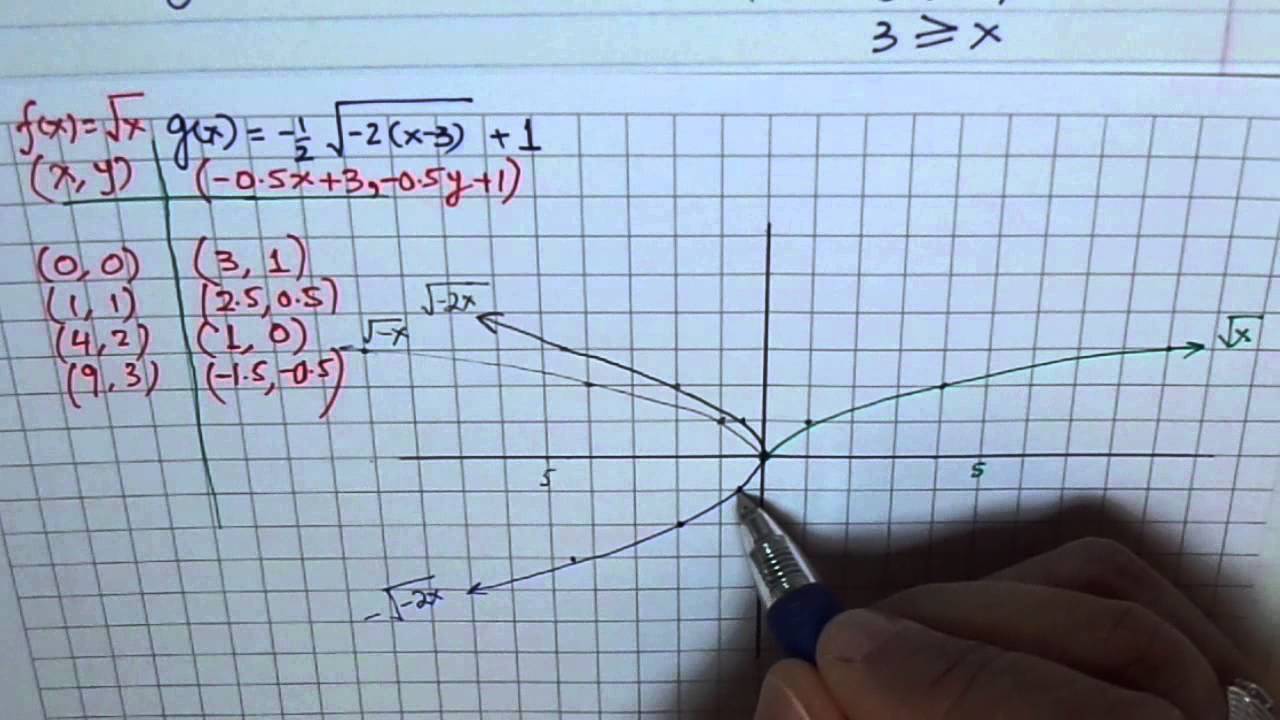 3 ≥ x
f(x) = √x g(x) = -1/2 √-2(x-3) + 1
(x, y) (-0.5x+3, -0.5y+1)
(0, 0) (3, 1)
(1, 1) (2.5, 0.5)
(4, 2) (1, 0)
(9, 3) (-1.5, -0.5)
√-2x
√-x
√x
5
5
-√-2x